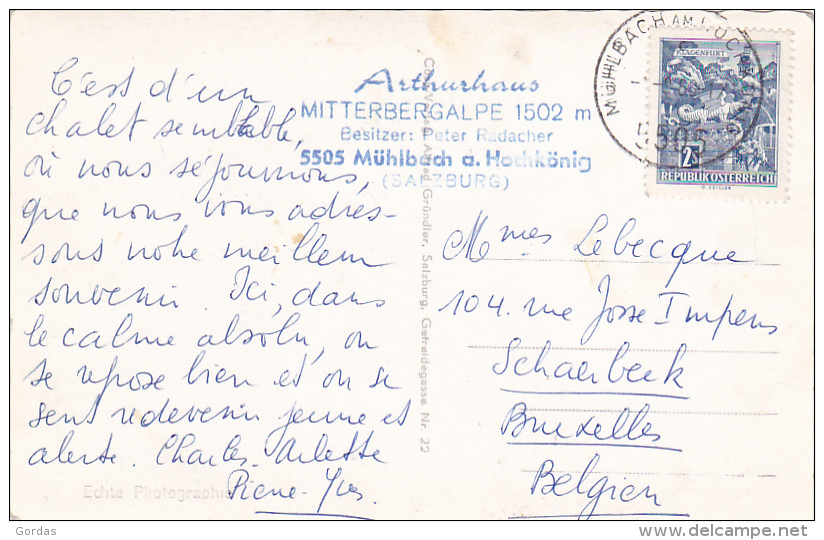 C'est d'un
chalet semblable,
où nous séjournons,
que nous vous adres-
sons notre meilleur
souvenir. Ici, dans
le calme absolu, on
se repose bien et on se
sent redevenir jeune et
alerte. Charles. Arlette
Pierre-Yves.
Echte Photographie
Arthurhaus
MITTERBERGALPE 1502 m
Besitzer: Peter Radacher
5505 Mühlbach a. Hochkönig
(SALZBURG)
Gründler, Salzburg, Getreidegasse Nr. 22
MÜHLBACH AM HOCHKÖNIG
5505
KLAGENFURT
2S
REPUBLIK ÖSTERREICH
Mmes Lebecque
104. rue Josse Impens
Schaerbeek
Bruxelles
Belgien
Gordas
www.delcampe.net